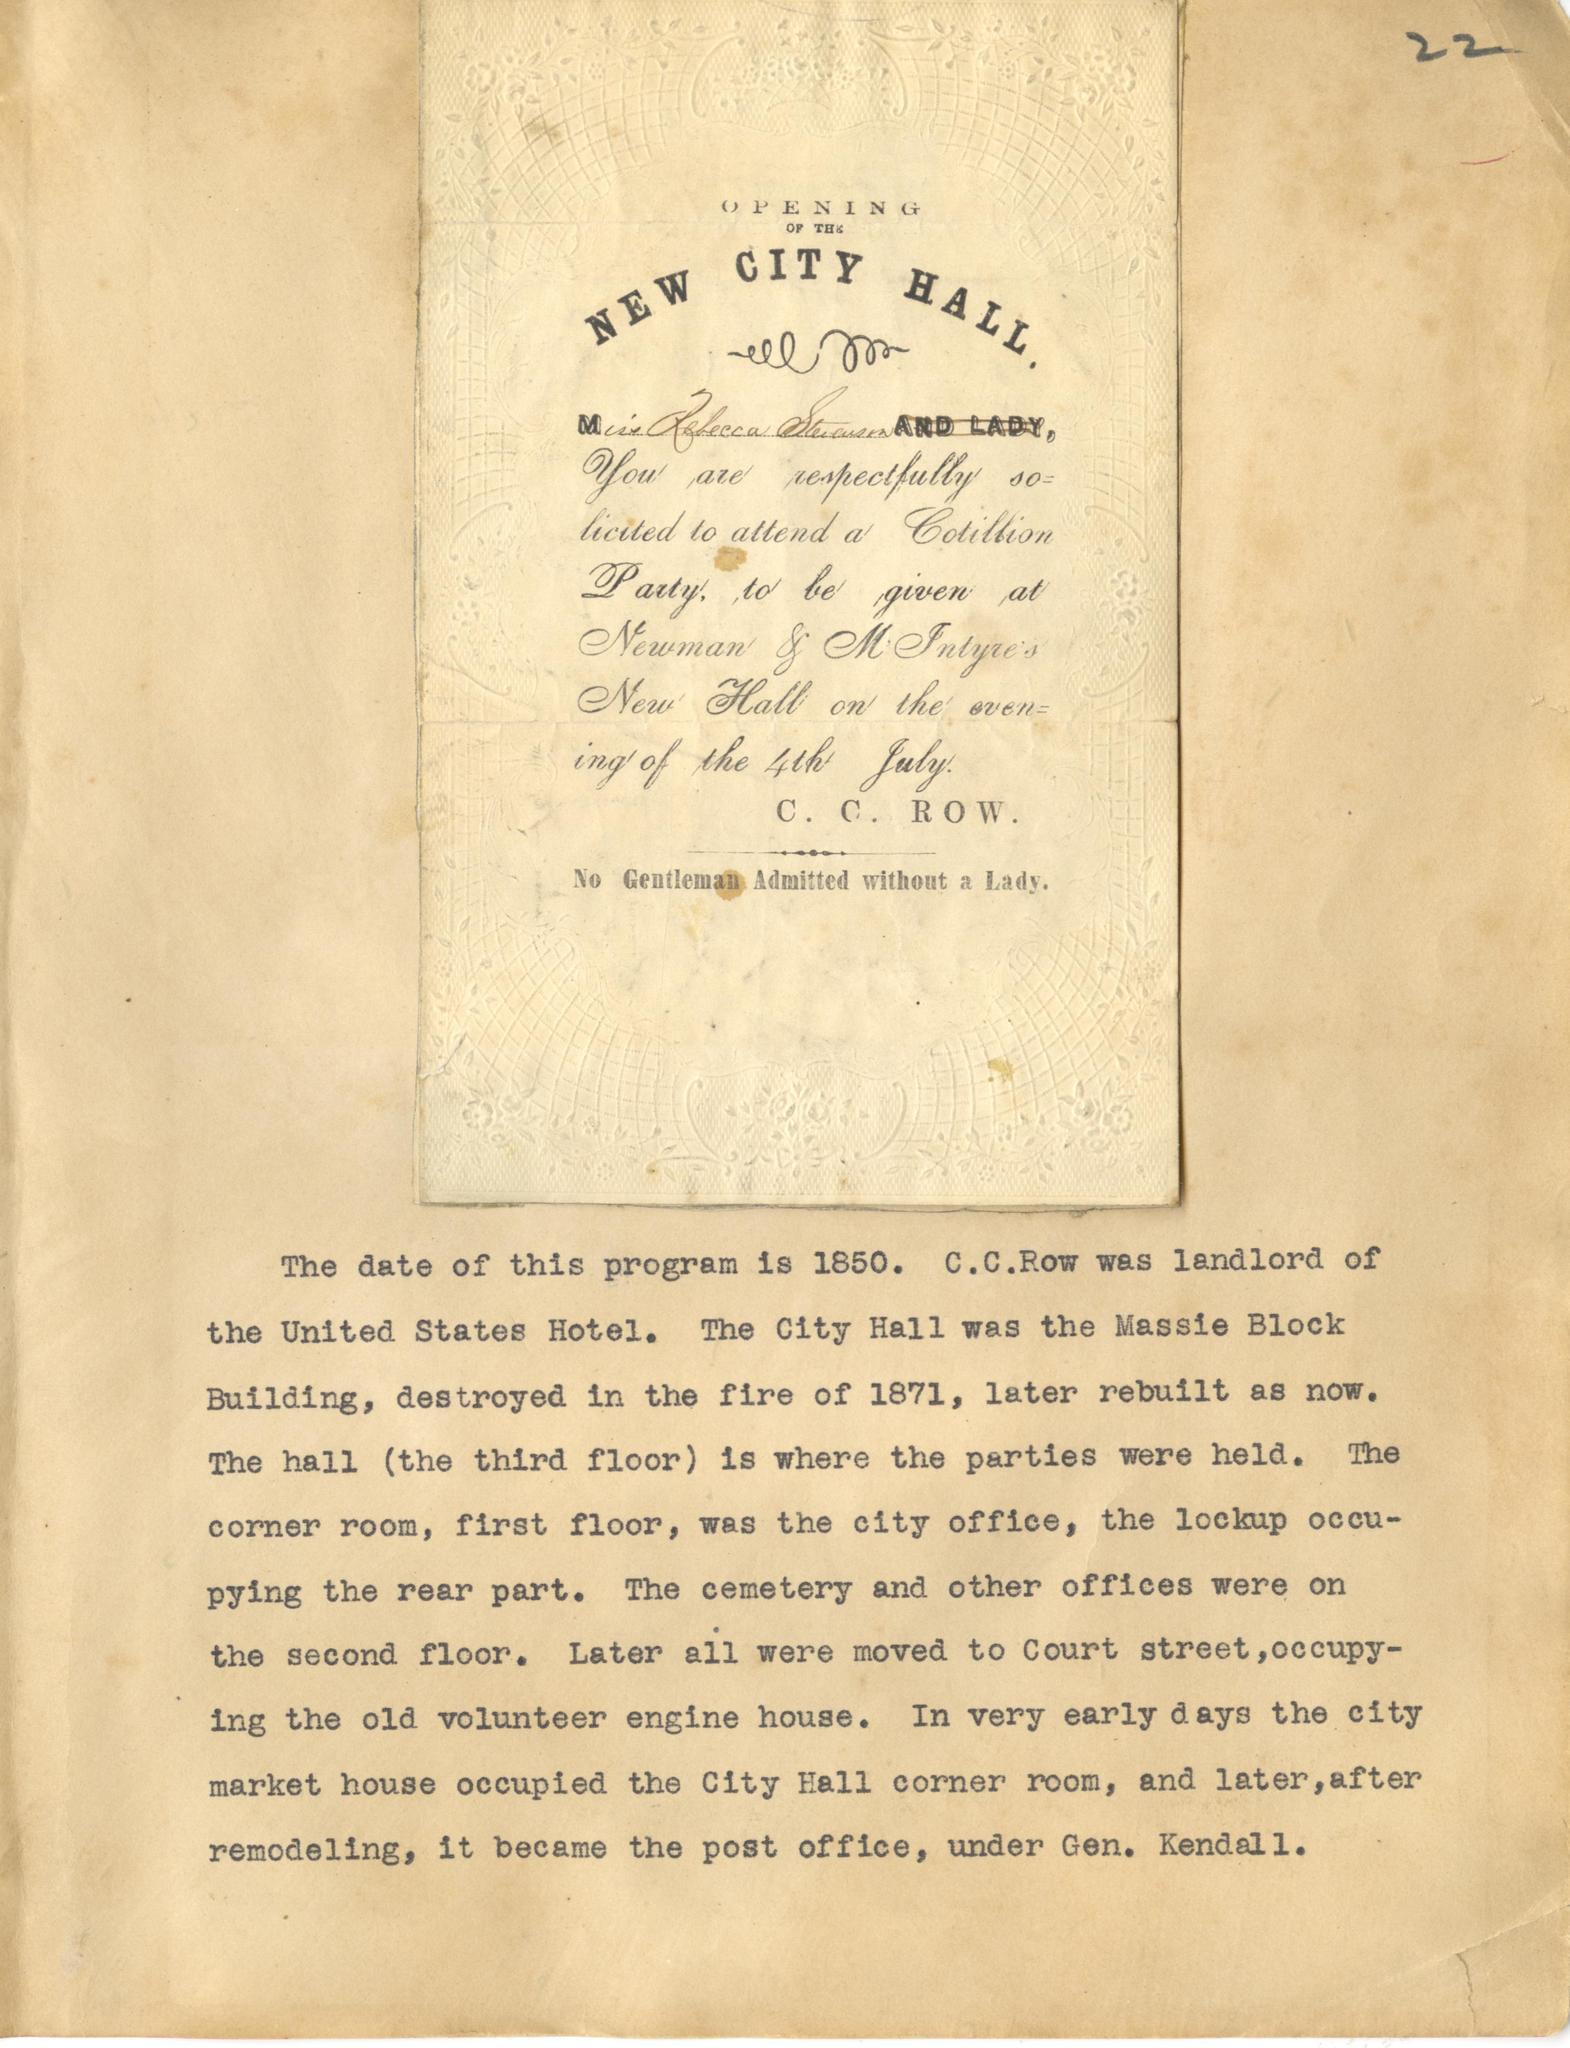 22
OPENING
OF THE
NEW CITY HALL.
Miss Rebecca Stevenson AND LADY,
You are respectfully so=
licited to attend a Cotillion
Party, to be given at
Newman & McIntyre's
New Hall on the even=
ing of the 4th July.
C. C. ROW.
No Gentleman Admitted without a Lady.
The date of this program is 1850. C.C.Row was landlord of
the United States Hotel. The City Hall was the Massie Block
Building, destroyed in the fire of 1871, later rebuilt as now.
The hall (the third floor) is where the parties were held. The
corner room, first floor, was the city office, the lockup occu-
pying the rear part. The cemetery and other offices were on
the second floor. Later all were moved to Court street,occupy-
ing the old volunteer engine house. In very early days the city
market house occupied the City Hall corner room, and later,after
remodeling, it became the post office, under Gen. Kendall.